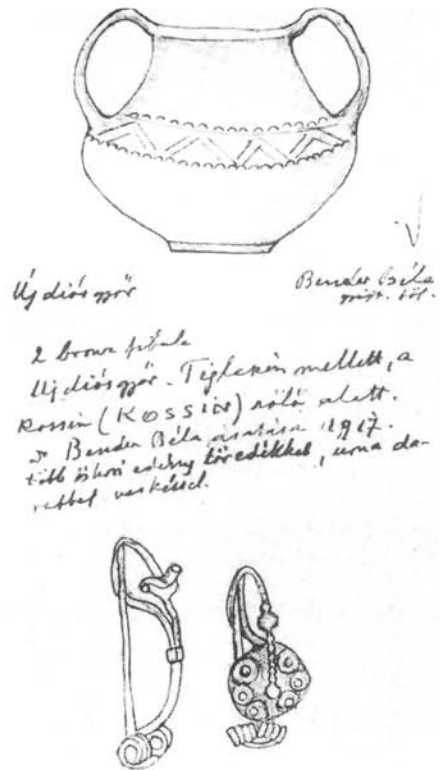 Új diósgyőr
Bender Béla
2 bronz fibula
Uj diósgyőr - Téglakem mellett, a
Kossin (KOSSIN) alatt.
Dr Bender Béla ásatása 1917.
több őskori edény töredékkel, urna da-
rabbal vaskéssel.